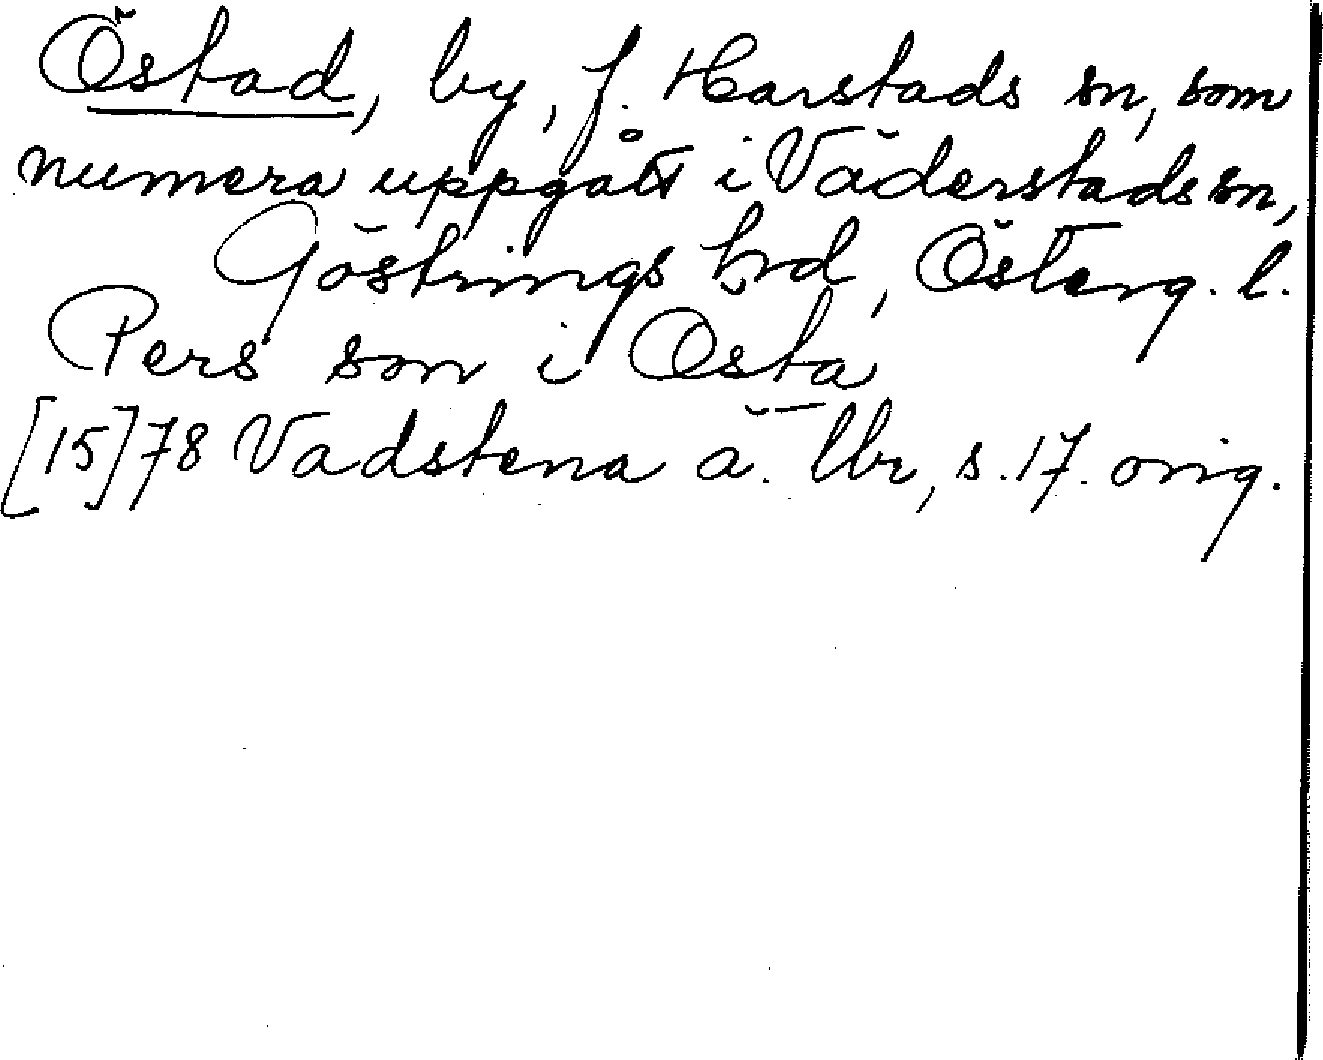 Östad, by, f. Harstads sn, som
numera uppgått i Väderstads sn,
Göstrings hrd, Österg. l.
Pers son i Østa
[15]78 Vadstena ä. lbr, s. 17. orig.